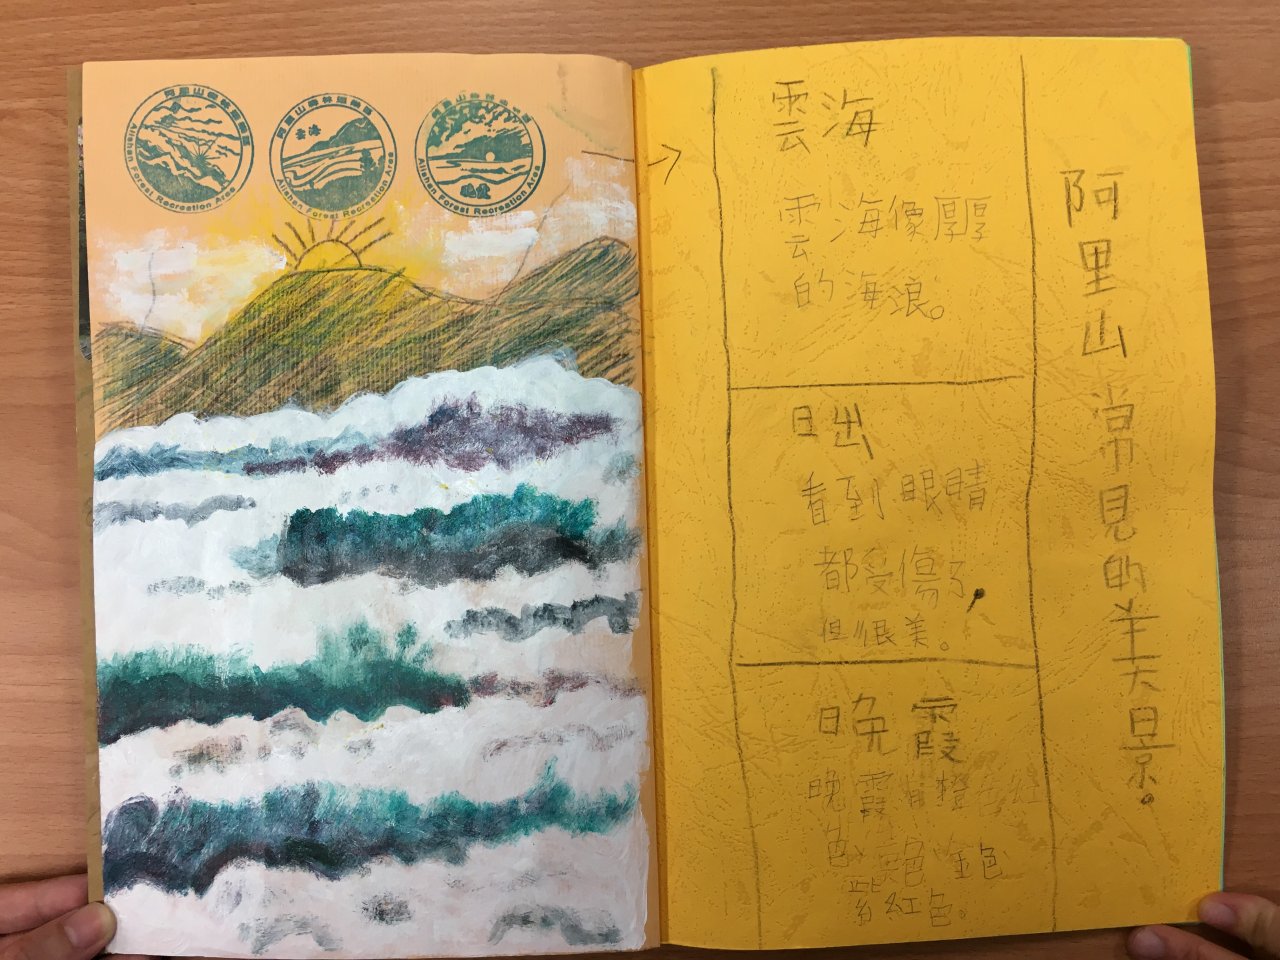 阿里山森林遊樂區
Alishan Forest Recreation Area
阿里山森林遊樂區
雲海
Alishan Forest Recreation Area
阿里山森林遊樂區
Alishan Forest Recreation Area
阿里山常見的美景。
雲海
雲海像厚厚
的海浪。
日出
看到眼睛
都受傷了,
但很美。
晚霞
晚霞有橙色紅
色、黃色、金色
紫紅色。